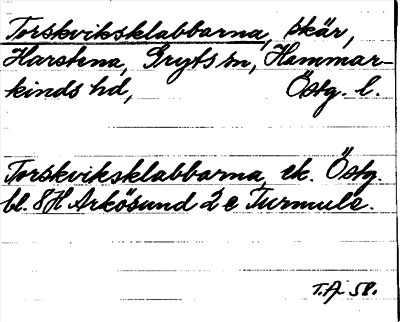 Torskviksklabbarna, skär,
Harstena, Gryts sn, Hammar-
kinds hd, Östg. l.
Torskviksklabbarna, ek. Östg.
bl. 8H Arkösund 2 e Turmule.
T.A. 58.